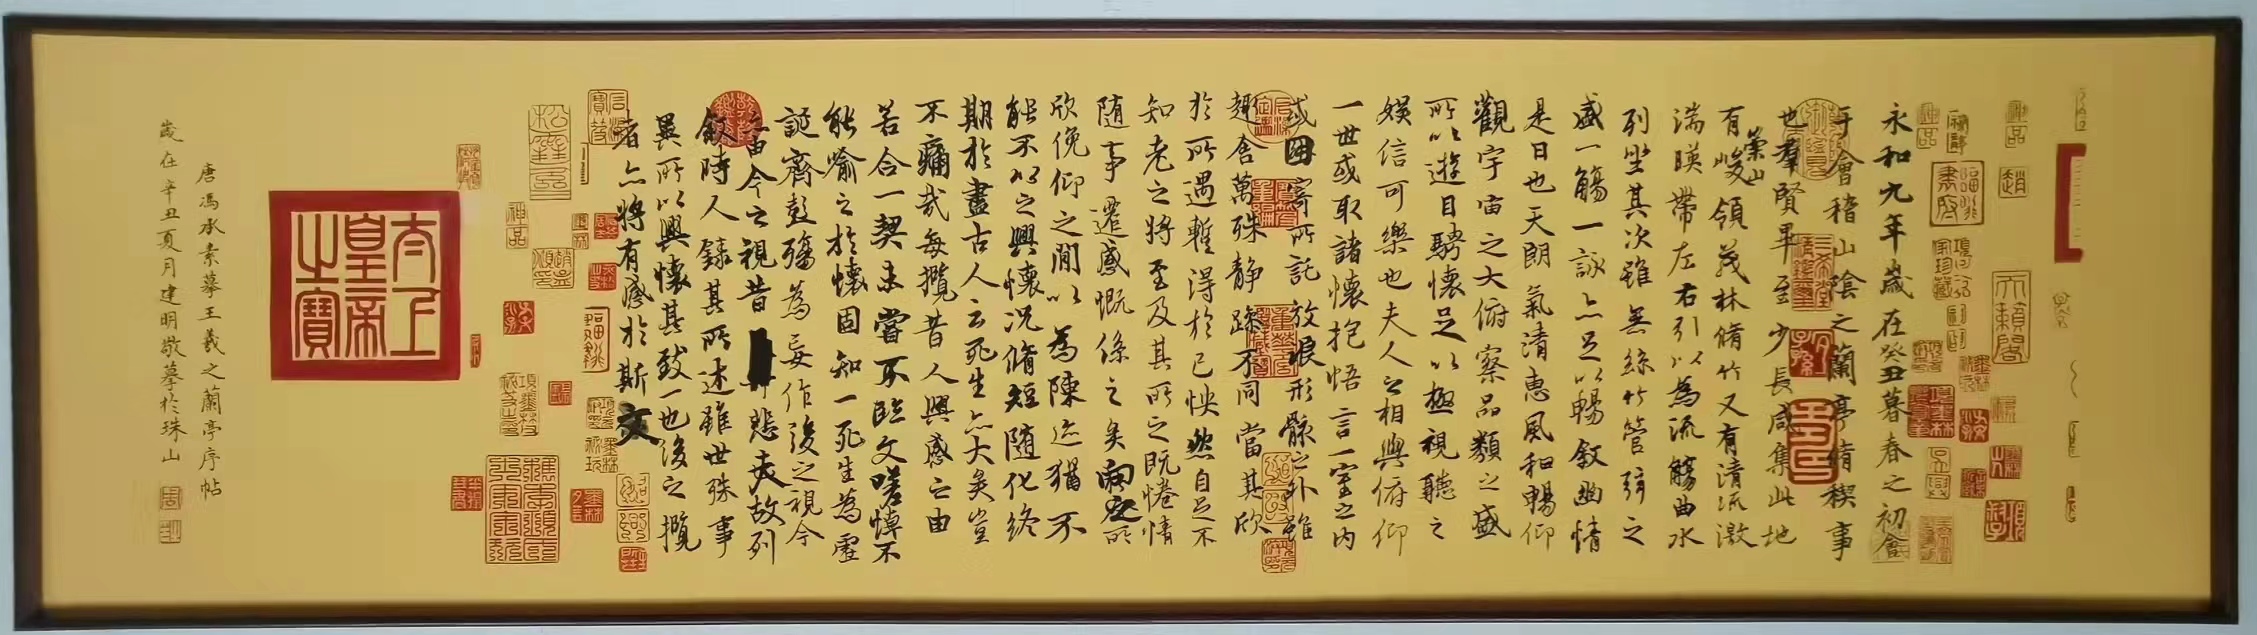 永和九年歲在癸丑暮春之初會
于會稽山陰之蘭亭脩稧事
也羣賢畢至少長咸集此地
有崇山峻領茂林脩竹又有清流激
湍暎帶左右引以為流觴曲水
列坐其次雖無絲竹管弦之
盛一觴一詠亦足以暢敘幽情
是日也天朗氣清惠風和暢仰
觀宇宙之大俯察品類之盛
所以遊目騁懷足以極視聽之
娛信可樂也夫人之相與俯仰
一世或取諸懷抱悟言一室之內
或因寄所託放浪形骸之外雖
趣舍萬殊静躁不同當其欣
於所遇暫得於己怏然自足不
知老之將至及其所之既惓情
随事遷感慨係之矣向之所
欣俛仰之閒以為陳迹猶不
能不以之興懷況脩短随化終
期於盡古人云死生亦大矣豈
不痛哉每攬昔人興感之由
若合一契未嘗不臨文嗟悼不
能喻之於懷固知一死生為虛
誕齊彭殤為妄作後之視今
亦由今之視昔
悲夫故列
敘時人錄其所述雖世殊事
異所以興懷其致一也後之攬
者亦將有感於斯文
太上
皇帝
之寶
唐馮承素摹王羲之蘭亭序帖
歲在辛丑夏月建明敬摹於珠山